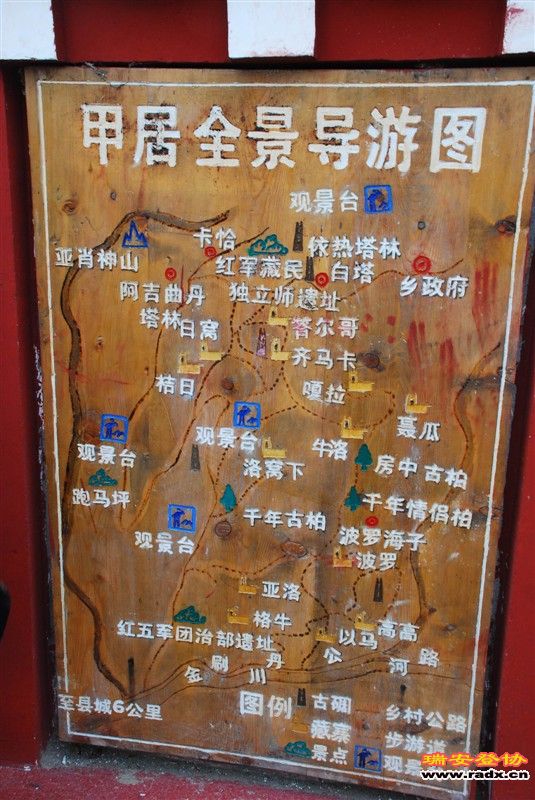 甲居全景导游图
观景台
卡恰
依热塔林
亚肖神山
红军藏民
白塔
乡政府
阿吉曲丹
独立师遗址
塔林
日窝
替尔哥
齐马卡
桔日
嘎拉
聂瓜
观景台
观景台
牛洛
房中古柏
洛窝下
跑马坪
千年古柏
千年情侣柏
观景台
波罗海子
波罗
亚洛
格牛
红五军团治部遗址
以马高高
刷丹公路
金川河
至县城6公里
图例
古碉
乡村公路
藏寨
步游
景点
观景
瑞安登协
www.radx.cn